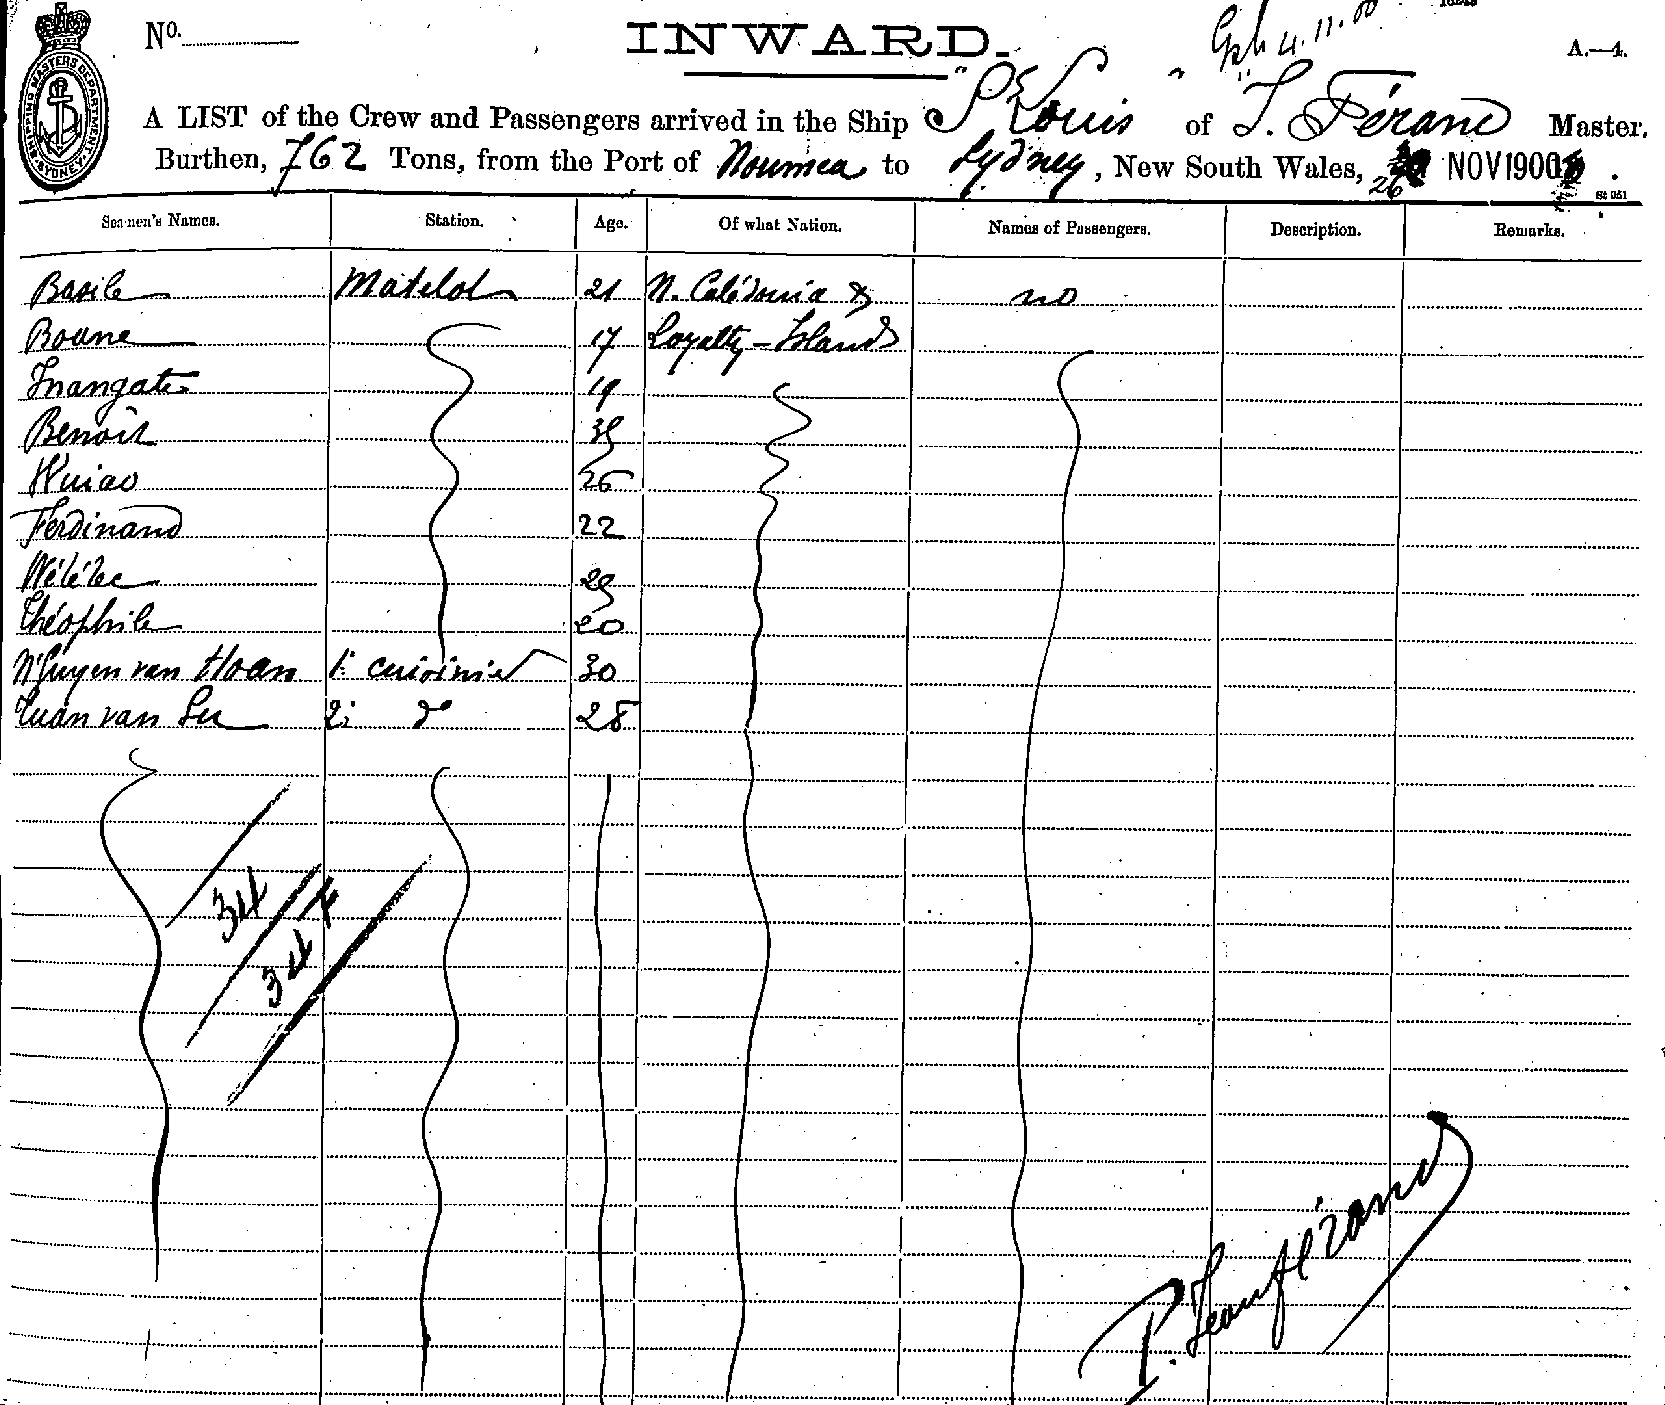 No. INWARD. 4.11.00 A.—4.
A LIST of the Crew and Passengers arrived in the Ship "St Louis" of J. Férand Master.
Burthen, 762 Tons, from the Port of Noumea to Sydney, New South Wales, 26 NOV 1900.
Seamen's Names. Station. Age. Of what Nation. Names of Passengers. Description. Remarks.
Basile Matelot 21 N. Calédonia & no
Boane 17 Loyalty-Islands
Inangate 19
Benoit 35
26
Ferdinand 22
29
Théophile 20
N'Guyen van Hoan 1: cuisinier 30
Tuan van Su 2: do 28
34
34
P. Jean Férand